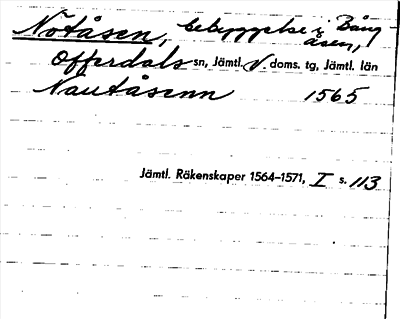 Notåsen, bebyggelse i Bång-
åsen,
Offerdals sn, Jämtl. V. doms. tg, Jämtl. län
Nautåsenn 1565
Jämtl. Räkenskaper 1564–1571, I s. 113